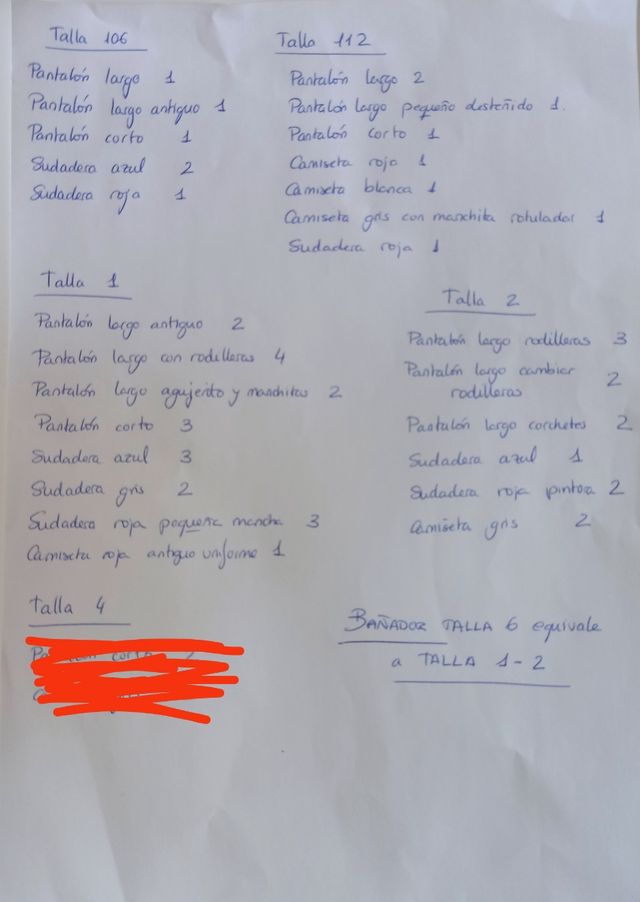 Talla 106
Pantalón largo 1
Pantalón largo antiguo 1
Pantalón corto 1
Sudadera azul 2
Sudadera roja 1
Talla 112
Pantalón largo 2
Pantalón largo pequeño desteñido 1.
Pantalón corto 1
Camiseta roja 1
Camiseta blanca 1
Camiseta gris con manchita rotulador 1
Sudadera roja 1
Talla 1
Pantalón largo antiguo 2
Pantalón largo con rodilleras 4
Pantalón largo agujerito y manchitas 2
Pantalón corto 3
Sudadera azul 3
Sudadera gris 2
Sudadera roja pequeña mancha 3
Camiseta roja antiguo uniforme 1
Talla 2
Pantalón largo rodilleras 3
Pantalón largo cambiar
rodilleras 2
Pantalón largo corchetes 2
Sudadera azul 1
Sudadera roja pintora 2
Camiseta gris 2
Talla 4
BAÑADOR TALLA 6 equivale
a TALLA 1-2